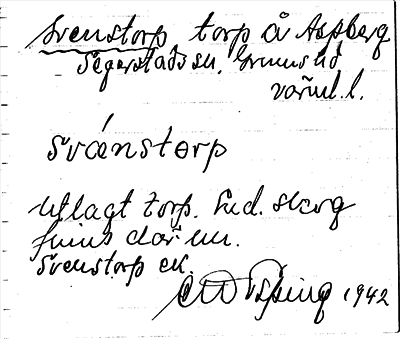 Svenstorp torp å Aspberg
Segerstads sn. Grums hd
värml. l.
Svánstorp
Utlagt torp. End. skog
finns där nu.
Svenstorp ek.
1942